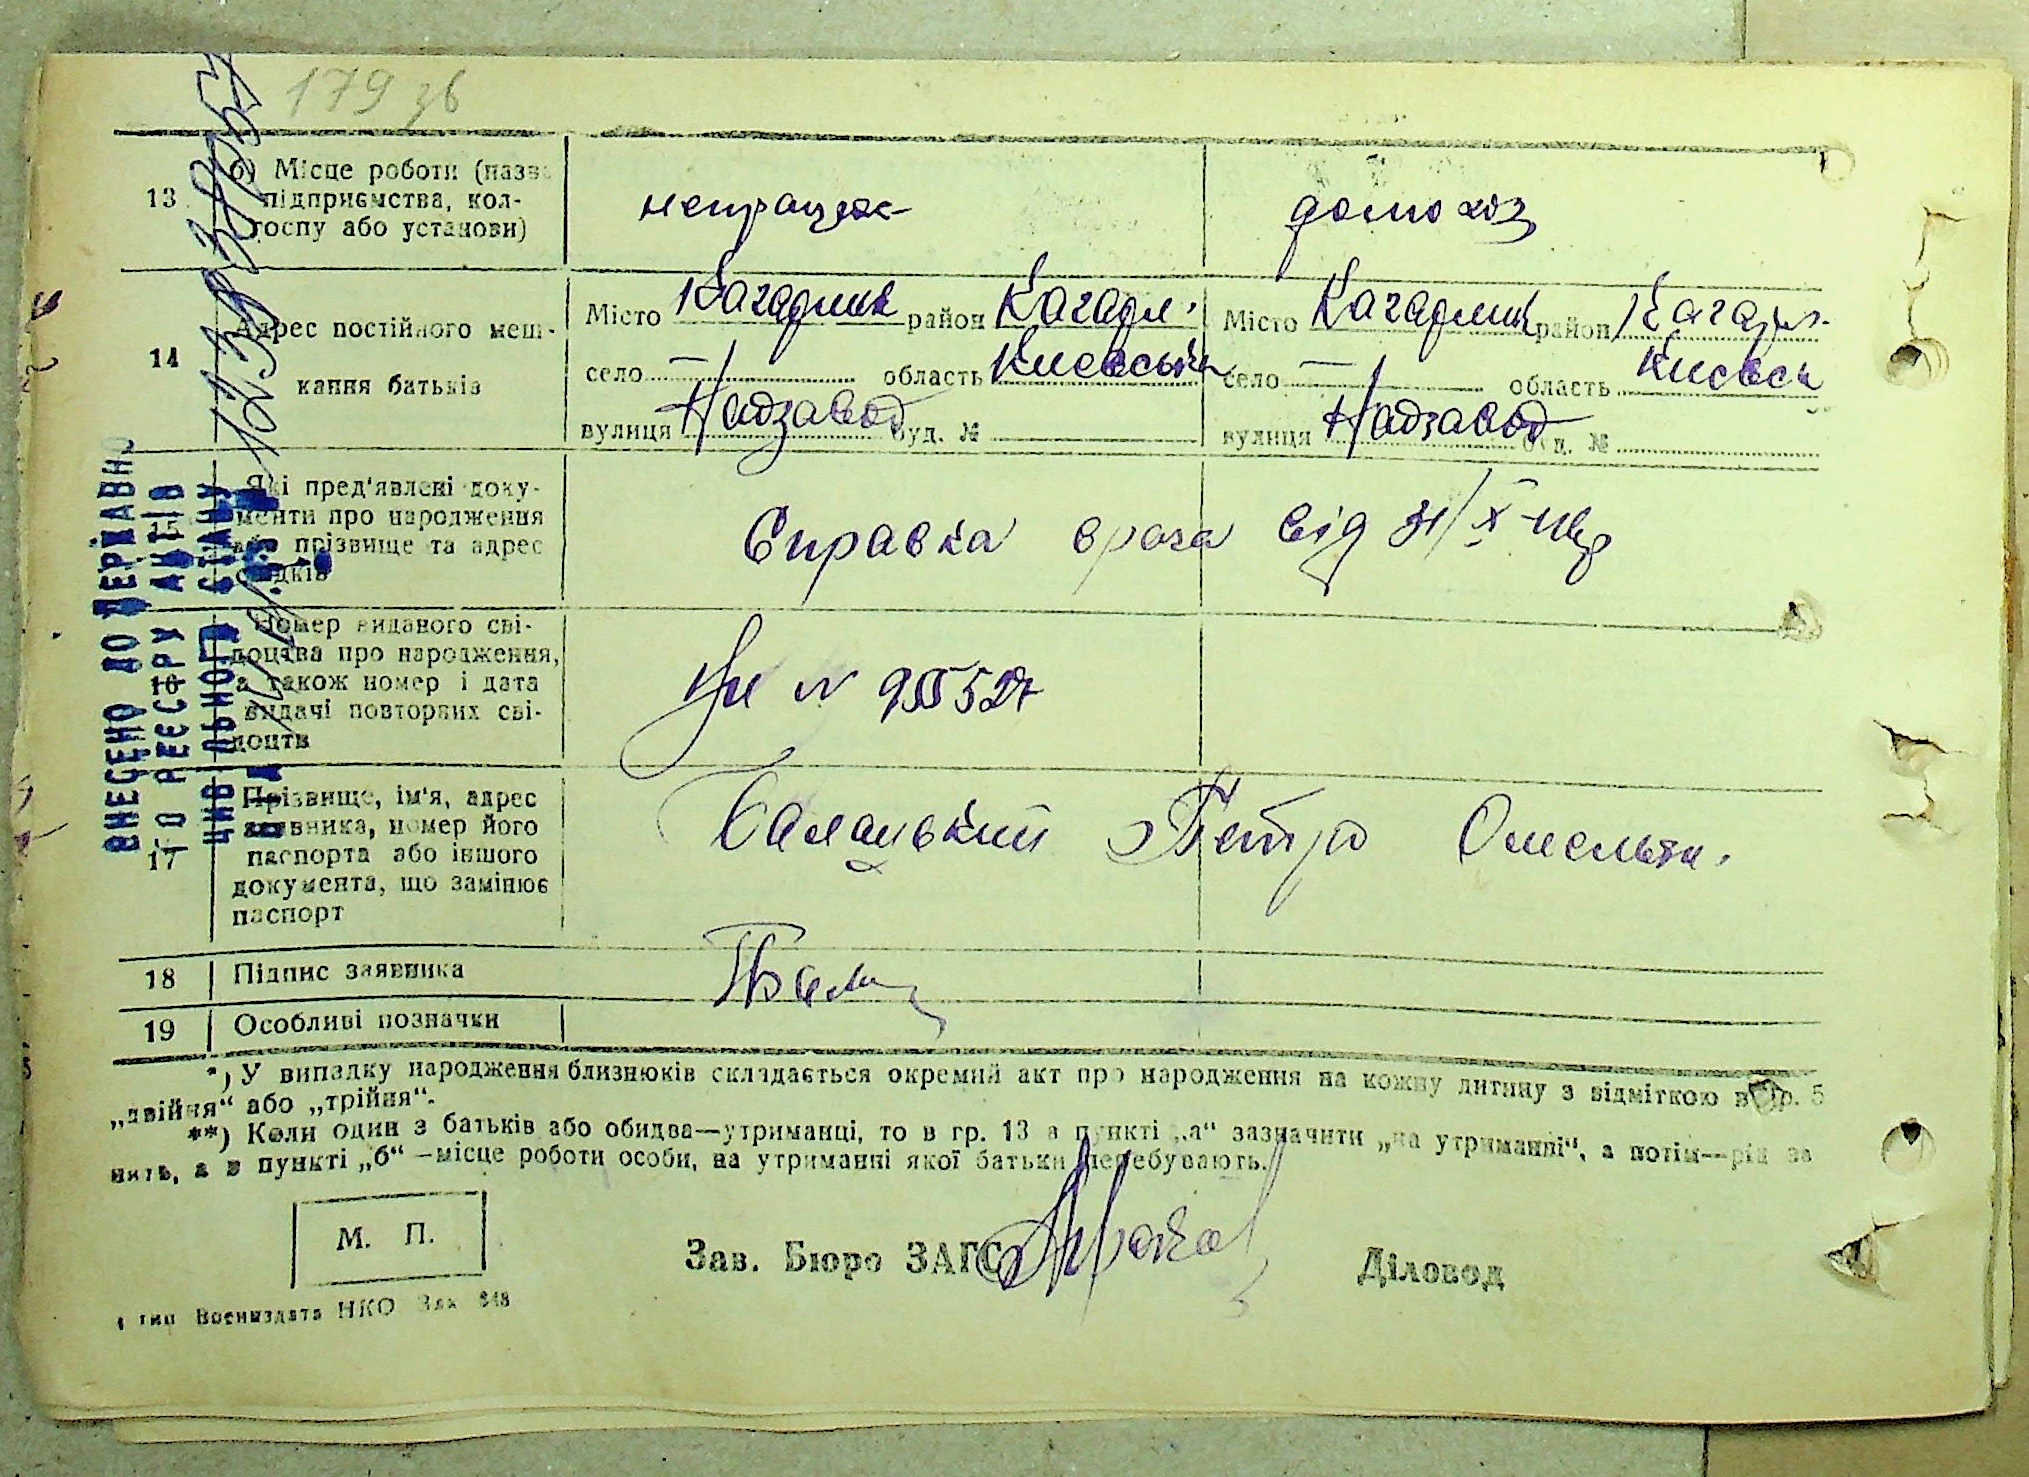 179 зв
13
б) Місце роботи (назва
підприємства, кол-
госпу або установи)
непрацює
домохоз
14
Адрес постійного меш-
кання батьків
Місто Кагарлик район Кагарл.
село — область Киевська
вулиця Надзавод буд. №
Місто Кагарлик район Кагарл.
село — область Киевськ
вулиця Надзавод буд. №
15
Які пред'явлені доку-
менти про народження
або прізвище та адрес
свідків
Справка врача від 31/X
16
Номер виданого сві-
доцтва про народження,
а також номер і дата
видачі повторних сві-
доцтв
N 955527
17
Прізвище, ім'я, адрес
заявника, номер його
паспорта або іншого
документа, що замінює
паспорт
Петро Омельян.
18 Підпис заявника
19 Особливі позначки
*) У випадку народження близнюків складається окремий акт про народження на кожну дитину з відміткою в гр. 5
„двійня“ або „трійня“.
**) Коли один з батьків або обидва—утриманці, то в гр. 13 в пункті „а“ зазначити „на утриманні“, а потім—рід за
нять, а в пункті „б“ —місце роботи особи, на утриманні якої батьки перебувають.
М. П.
Зав. Бюро ЗАГС
Діловод
тип Воениздата НКО Зак 848
ВНЕСЕНО ДО ДЕРЖАВНО
ГО РЕЄСТРУ АКТІВ
ЦИВІЛЬНОГО СТАНУ